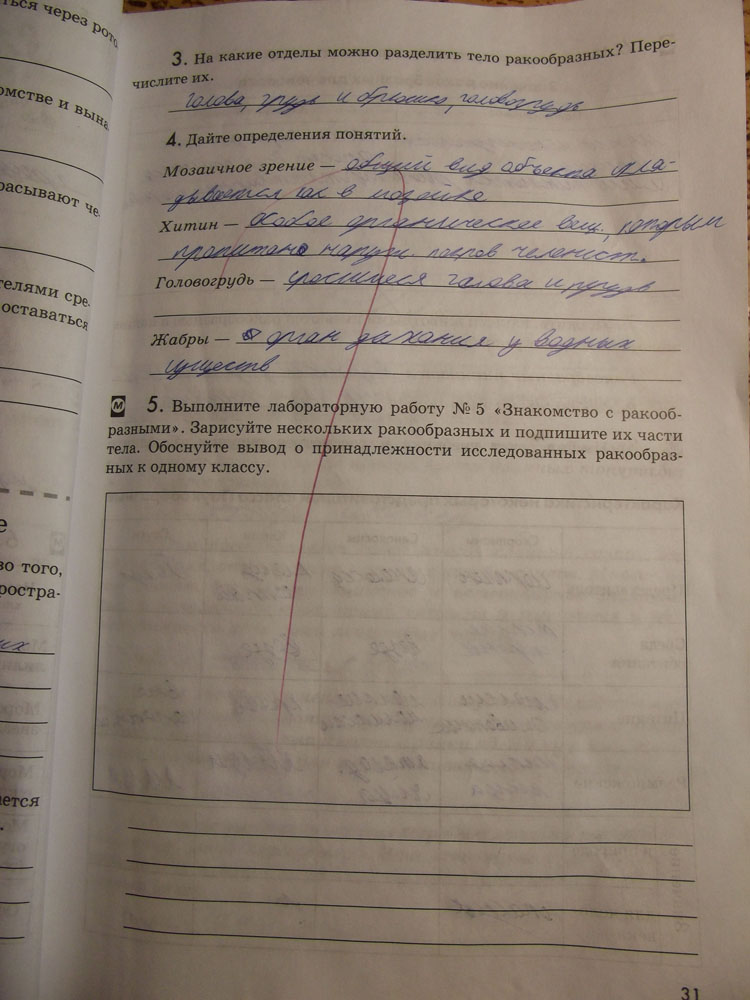 ться через рото
омстве и вына
расывают че-
телями сре-
оставаться
е
во того,
ростра-
их
ется
3. На какие отделы можно разделить тело ракообразных? Пере-
числите их.
голова, грудь и брюшко, головогрудь
4. Дайте определения понятий.
Мозаичное зрение — общий вид объекта скла-
дывается как в мозаике
Хитин — особое органическое вещ., которым
пропитано наружн. покров членист.
Головогрудь — сросшиеся голова и грудь
Жабры — орган дыхания у водных
существ
М 5. Выполните лабораторную работу № 5 «Знакомство с ракооб-
разными». Зарисуйте нескольких ракообразных и подпишите их части
тела. Обоснуйте вывод о принадлежности исследованных ракообраз-
ных к одному классу.
31